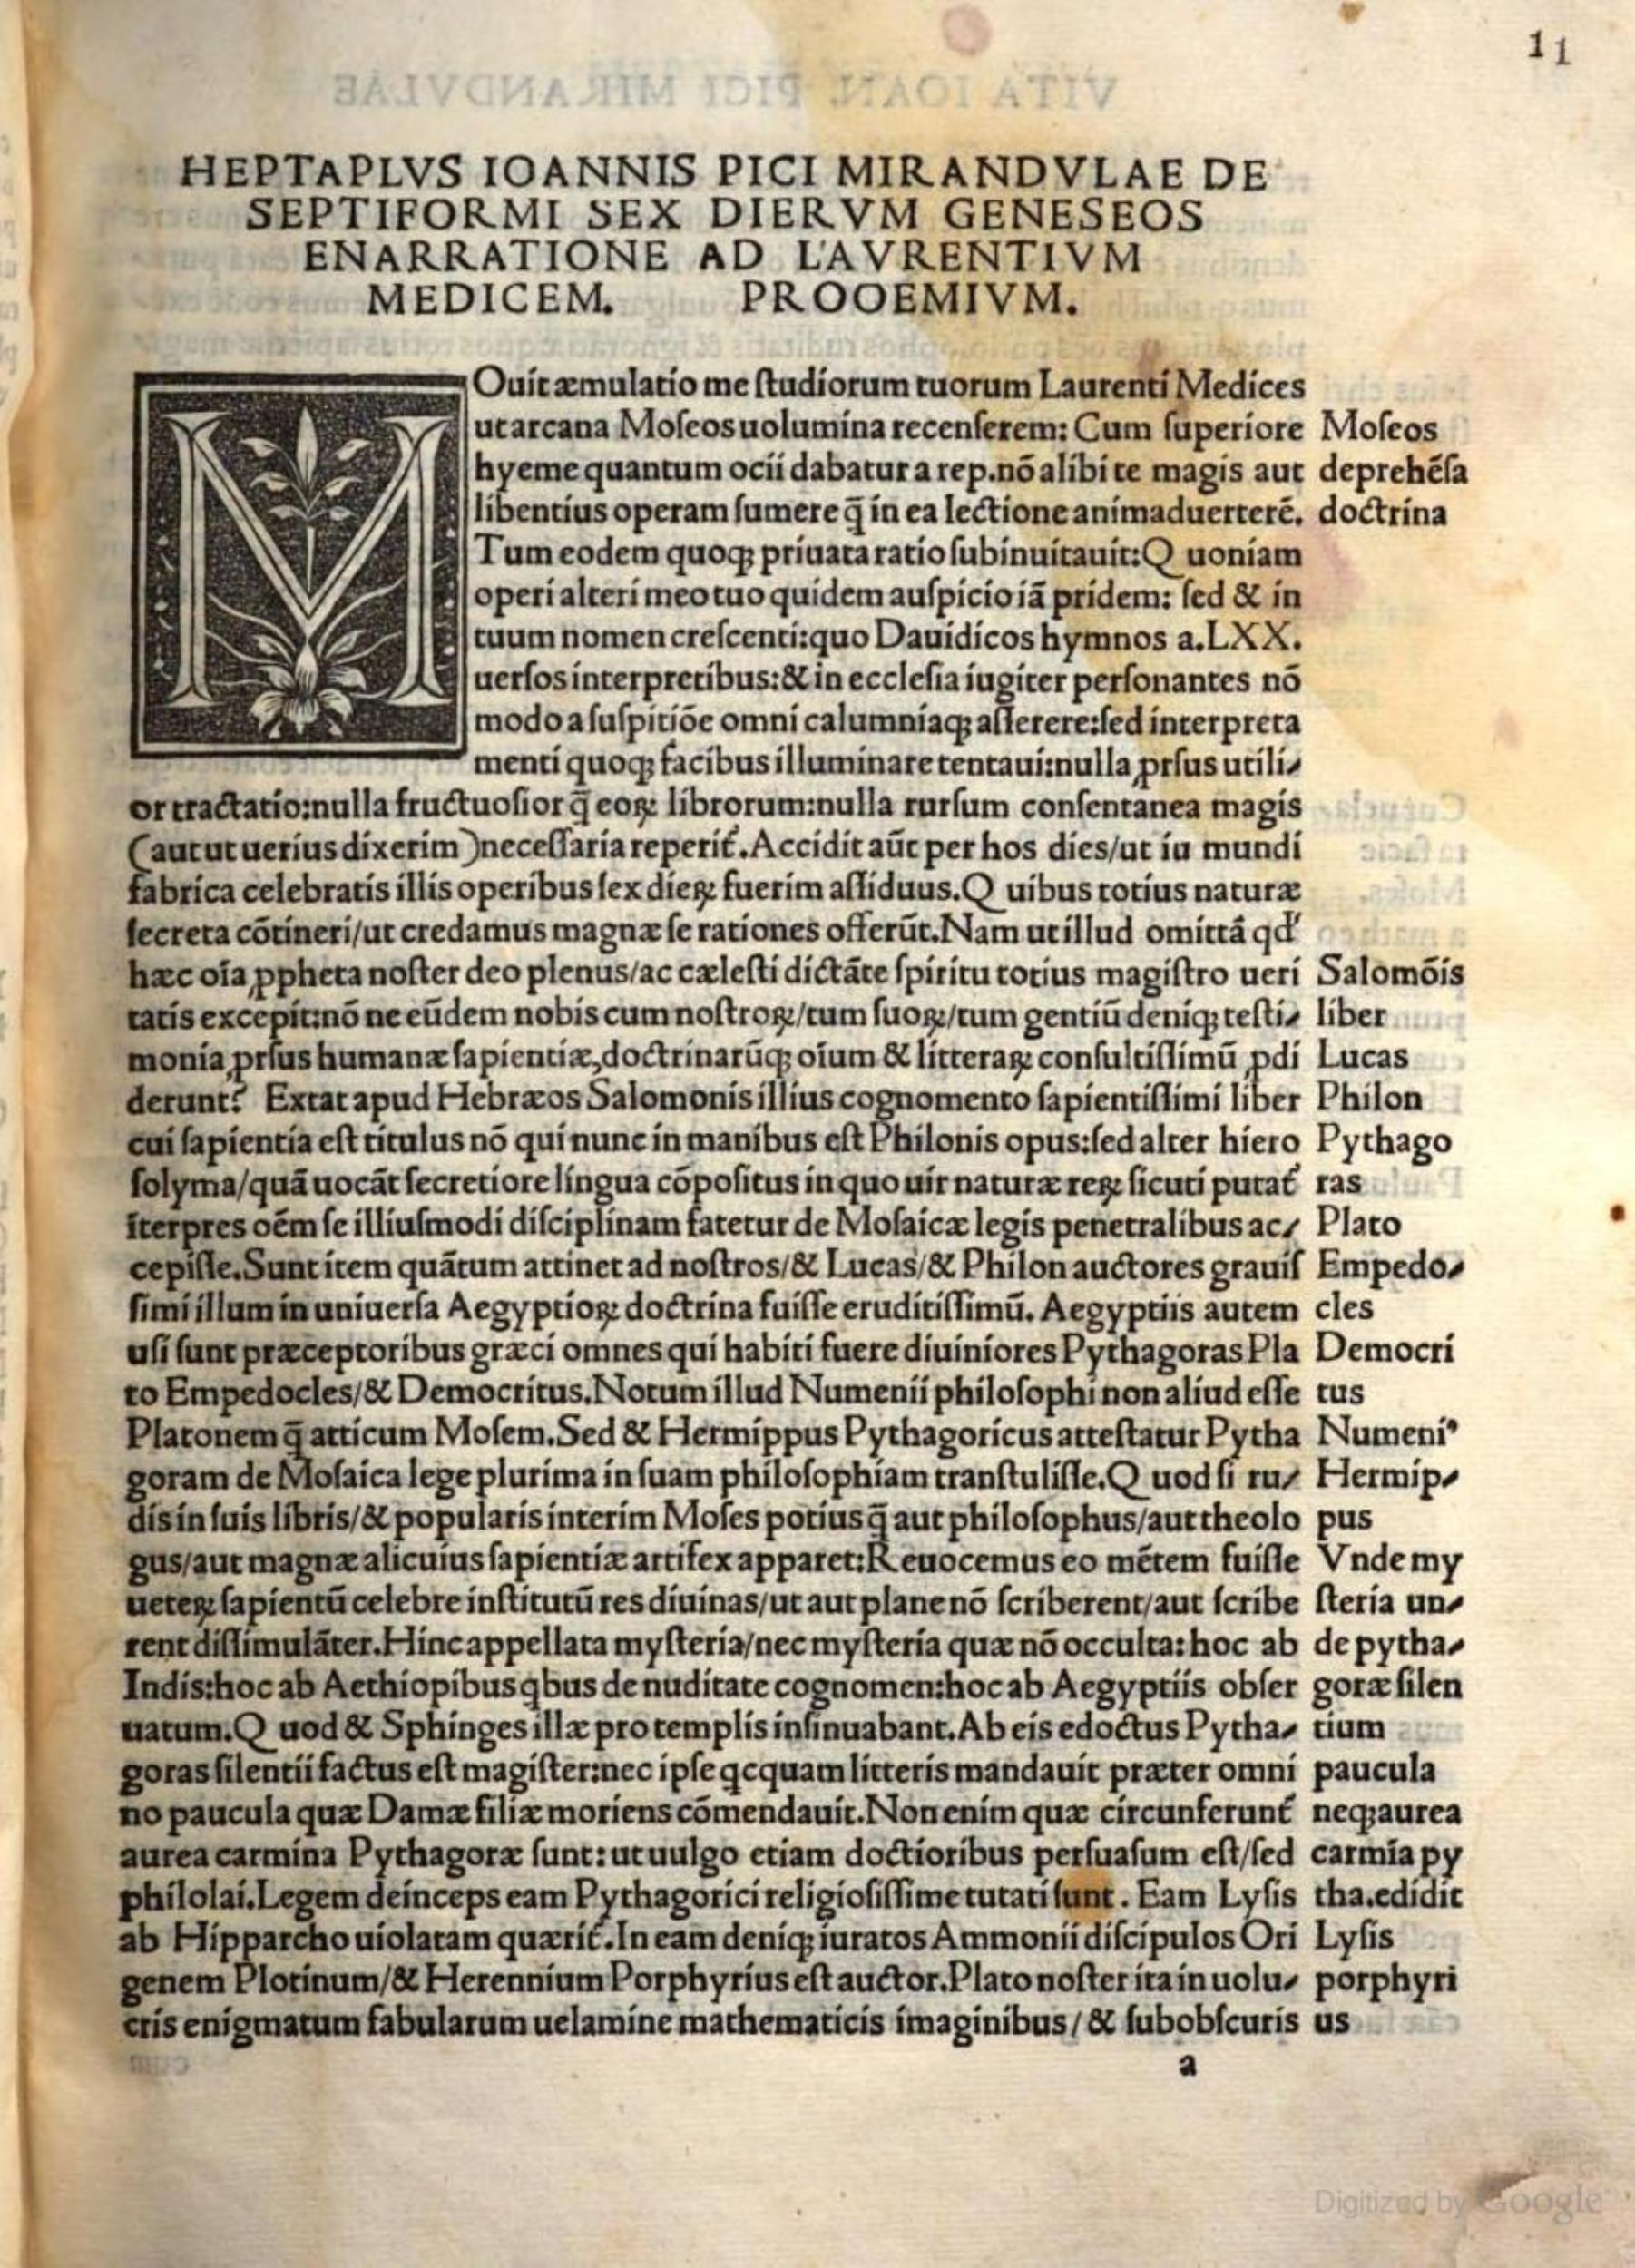 11
HEPTAPLVS IOANNIS PICI MIRANDVLAE DE
SEPTIFORMI SEX DIERVM GENESEOS
ENARRATIONE AD LAVRENTIVM
MEDICEM. PROOEMIVM.
MOuit æmulatio me ſtudiorum tuorum Laurenti Medices
ut arcana Moſeos uolumina recenſerem: Cum ſuperiore
hyeme quantum ocii dabatur a rep. nō alibi te magis aut
libentius operam ſumere q̄ in ea lectione animaduerterē.
Tum eodem quoqꝫ priuata ratio ſubinuitauit: Quoniam
operi alteri meo tuo quidem auſpicio iā pridem: ſed & in
tuum nomen creſcenti: quo Dauidicos hymnos a. LXX.
uerſos interpretibus: & in eccleſia iugiter perſonantes nō
modo a ſuſpitiōe omni calumniaqꝫ aſſerere: ſed interpreta
menti quoqꝫ facibus illuminare tentaui: nulla ꝓrſus utili-
or tractatio: nulla fructuoſior q̄ eoꝝ librorum: nulla rurſum conſentanea magis
(aut ut uerius dixerim) neceſſaria reperit̄. Accidit aūt per hos dies/ut iu mundi
fabrica celebratis illis operibus ſex dieꝝ fuerim aſſiduus. Quibus totius naturæ
ſecreta cōtineri/ut credamus magnæ ſe rationes offerūt. Nam ut illud omittā qd̓
hæc oīa ꝓpheta noſter deo plenus/ac cæleſti dictāte ſpiritu totius magiſtro ueri
tatis excepit: nō ne eūdem nobis cum noſtroꝝ/tum ſuoꝝ/tum gentiū deniqꝫ teſti-
monia ꝓrſus humanæ ſapientiæ, doctrinarūqꝫ oīum & litteraꝝ conſultiſſimū ꝓdi
derunt? Extat apud Hebræos Salomonis illius cognomento ſapientiſſimi liber
cui ſapientia eſt titulus nō qui nunc in manibus eſt Philonis opus: ſed alter hiero
ſolyma/quā uocāt ſecretiore lingua cōpoſitus in quo uir naturæ reꝝ ſicuti putat̄
īterpres oēm ſe illiuſmodi diſciplinam fatetur de Moſaicæ legis penetralibus ac-
cepiſſe. Sunt item quātum attinet ad noſtros/& Lucas/& Philon auctores grauiſ
ſimi illum in uniuerſa Aegyptioꝝ doctrina fuiſſe eruditiſſimū. Aegyptiis autem
uſi ſunt præceptoribus græci omnes qui habiti fuere diuiniores Pythagoras Pla
to Empedocles/& Democritus. Notum illud Numenii philoſophi non aliud eſſe
Platonem q̄ atticum Moſem. Sed & Hermippus Pythagoricus atteſtatur Pytha
goram de Moſaica lege plurima in ſuam philoſophiam tranſtuliſſe. Quod ſi ru-
dis in ſuis libris/& popularis interim Moſes potius q̄ aut philoſophus/aut theolo
gus/aut magnæ alicuius ſapientiæ artifex apparet: Reuocemus eo mētem fuiſſe
ueteꝝ ſapientū celebre inſtitutū res diuinas/ut aut plane nō ſcriberent/aut ſcribe
rent diſſimulāter. Hinc appellata myſteria/nec myſteria quæ nō occulta: hoc ab
Indis: hoc ab Aethiopibus qbus de nuditate cognomen: hoc ab Aegyptiis obſer
uatum. Quod & Sphinges illæ pro templis inſinuabant. Ab eis edoctus Pytha-
goras ſilentii factus eſt magiſter: nec ipſe qcquam litteris mandauit præter omni
no paucula quæ Damæ filiæ moriens cōmendauit. Non enim quæ circunferunt̄
aurea carmina Pythagoræ ſunt: ut uulgo etiam doctioribus perſuaſum eſt/ſed
philolai. Legem deinceps eam Pythagorici religioſiſſime tutati ſunt. Eam Lyſis
ab Hipparcho uiolatam quærit̄. In eam deniqꝫ iuratos Ammonii diſcipulos Ori
genem Plotinum/& Herennium Porphyrius eſt auctor. Plato noſter ita in uolu-
cris enigmatum fabularum uelamine mathematicis imaginibus/& ſubobſcuris
a
Moſeos
deprehēſa
doctrina
Salomōis
liber
Lucas
Philon
Pythago
ras
Plato
Empedo-
cles
Democri
tus
Numeniꝰ
Hermip-
pus
Vnde my
ſteria un-
de pytha-
goræ ſilen
tium
paucula
neqꝫ aurea
carmīa py
tha. edidit
Lyſis
porphyri
us
Digitized by Google